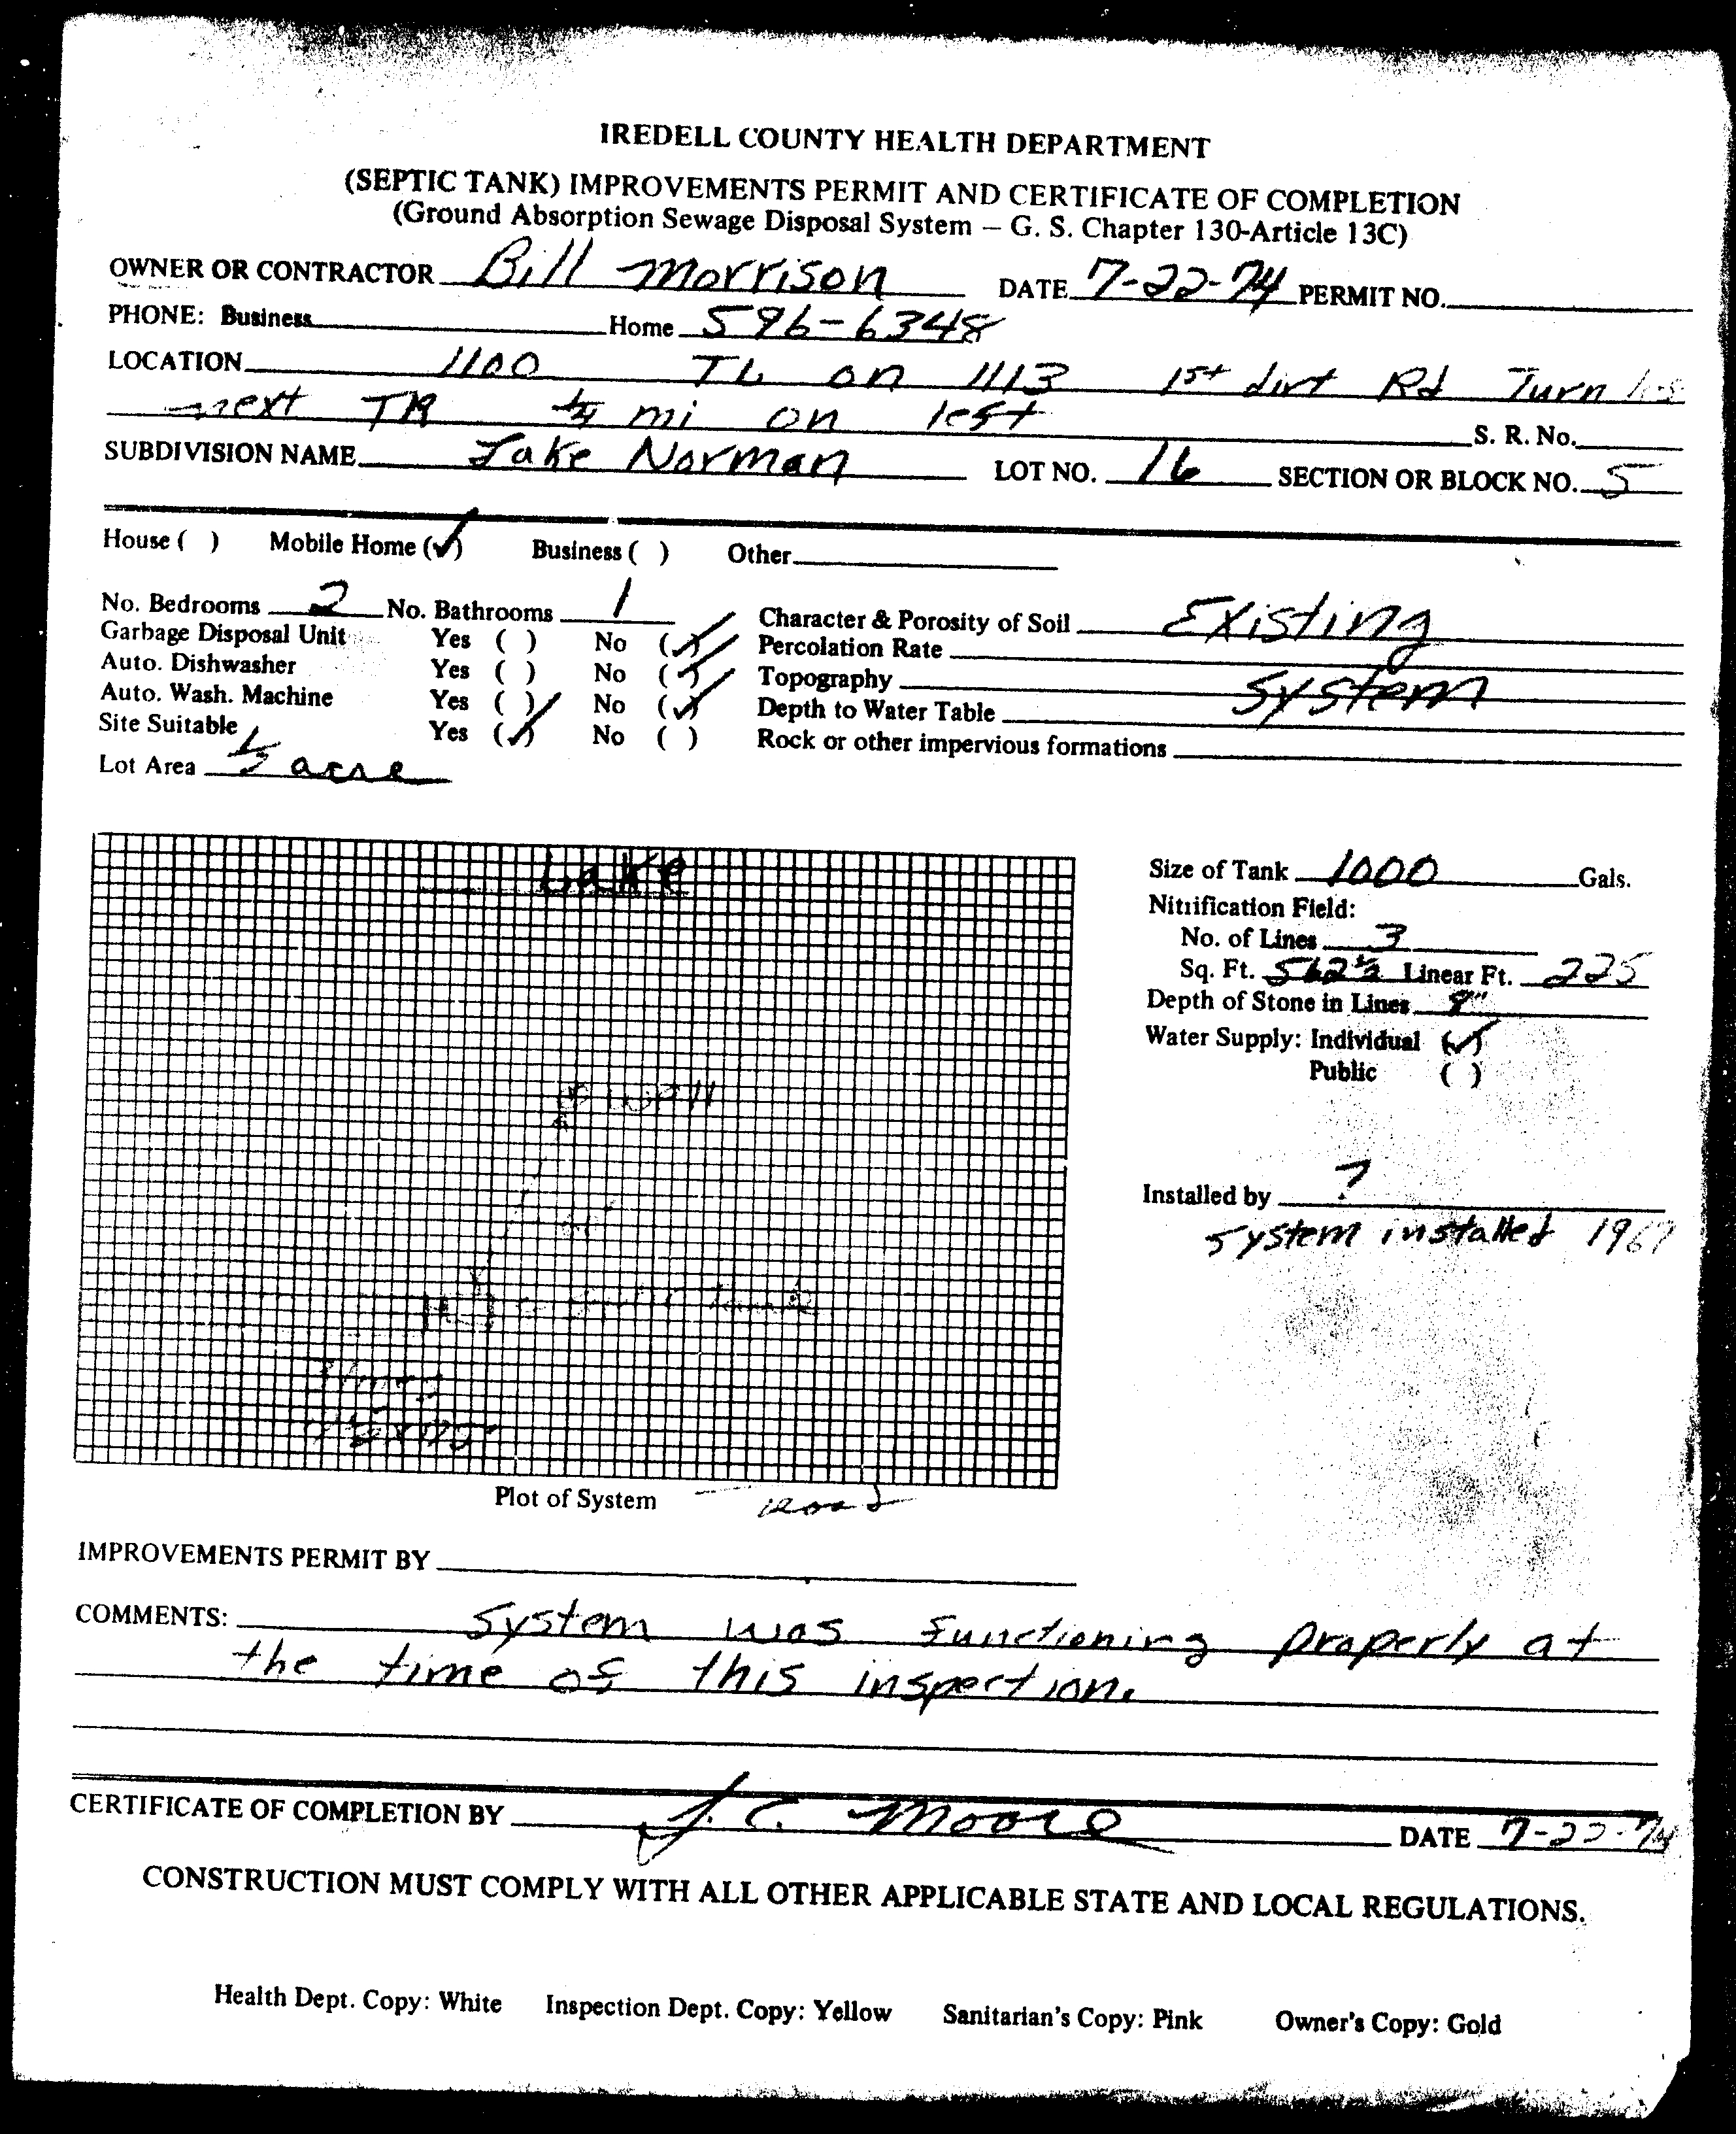 IREDELL COUNTY HEALTH DEPARTMENT
(SEPTIC TANK) IMPROVEMENTS PERMIT AND CERTIFICATE OF COMPLETION
(Ground Absorption Sewage Disposal System – G. S. Chapter 130-Article 13C)
OWNER OR CONTRACTOR Bill Morrison DATE 7-22-74 PERMIT NO.
PHONE: Business Home 596-6348
LOCATION 1100 TL on 1113 1st dirt Rd Turn
next TR 1/4 mi on left S. R. No.
SUBDIVISION NAME Lake Norman LOT NO. 16 SECTION OR BLOCK NO. 5
House ( ) Mobile Home (✓) Business ( ) Other
No. Bedrooms 2 No. Bathrooms 1 Character & Porosity of Soil Existing
Garbage Disposal Unit Yes ( ) No (✓) Percolation Rate
Auto. Dishwasher Yes ( ) No (✓) Topography System
Auto. Wash. Machine Yes ( ) No (✓) Depth to Water Table
Site Suitable Yes (✓) No ( ) Rock or other impervious formations
Lot Area acre
Lake
Size of Tank 1000 Gals.
Nitrification Field:
No. of Lines 3
Sq. Ft. 562 1/2 Linear Ft. 225
Depth of Stone in Lines
Water Supply: Individual (✓)
Public ( )
well
Installed by ?
System installed 1967
Plot of System Road
IMPROVEMENTS PERMIT BY
COMMENTS: System was functioning properly at
the time of this inspection.
CERTIFICATE OF COMPLETION BY J. C. Moore DATE 7-22-74
CONSTRUCTION MUST COMPLY WITH ALL OTHER APPLICABLE STATE AND LOCAL REGULATIONS.
Health Dept. Copy: White Inspection Dept. Copy: Yellow Sanitarian's Copy: Pink Owner's Copy: Gold